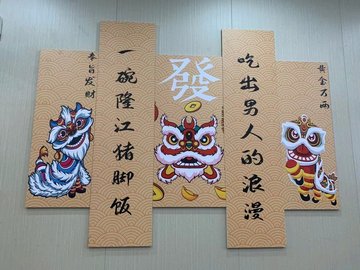 奉旨发财
一碗隆江猪脚饭
發
吃出男人的浪漫
黄金万两